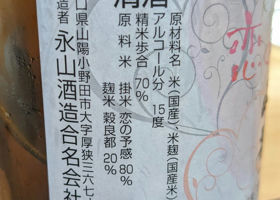 清酒
原材料名 米(国産)、米麹(国産米)
アルコール分 15度
精米歩合 70%
原料米 掛米 恋の予感 80%
麹米 穀良都 20%
口県山陽小野田市大字厚狭三六七
造者 永山酒造合名会社